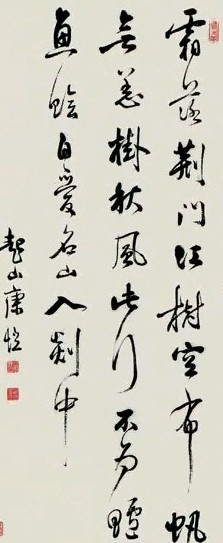 霜落荆門江樹空布帆
無恙掛秋風此行不為鱸
魚鱠自愛名山入剡中
山康